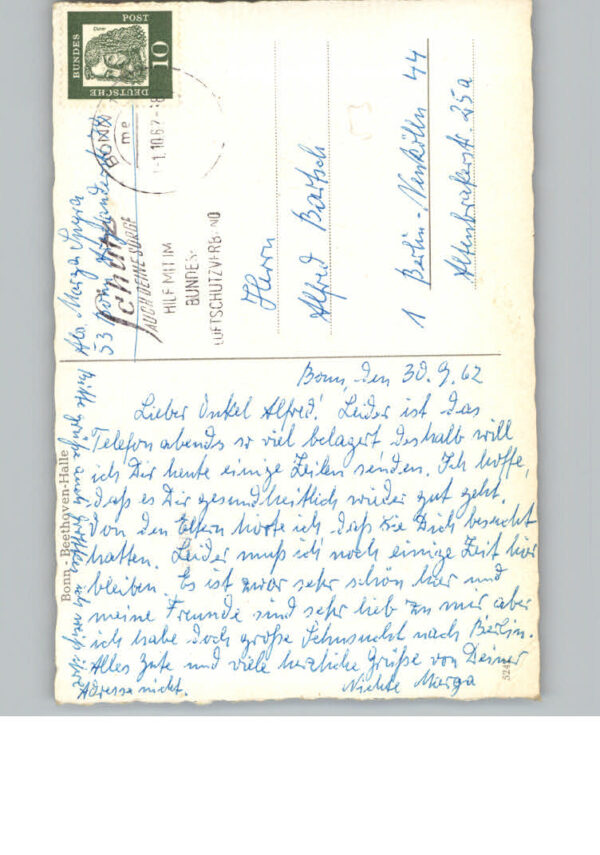 DEUTSCHE
BUNDES
POST
10
Dürer
BONN
me
-1.10.62-18
Schutz
AUCH DEINE SORGE
HILF MIT IM
BUNDES-
LUFTSCHUTZVERBAND
Abs. Marga
53 Bonn
Herrn
Alfred Bartsch
1 Berlin-Neukölln 44
25a
Bonn - Beethoven-Halle
Bonn, den 30.9.62
Lieber Onkel Alfred! Leider ist das
Telefon abends so viel belagert deshalb will
ich Dir heute einige Zeilen senden. Ich hoffe,
daß es Dir gesundheitlich wieder gut geht.
Von den Eltern hörte ich daß sie Dich besucht
hatten. Leider muß ich noch einige Zeit hier
bleiben. Es ist zwar sehr schön hier und
meine Freunde sind sehr lieb zu mir aber
ich habe doch große Sehnsucht nach Berlin.
Alles Gute und viele herzliche Grüße von Deiner
Nichte Marga
Bitte
Adresse nicht.